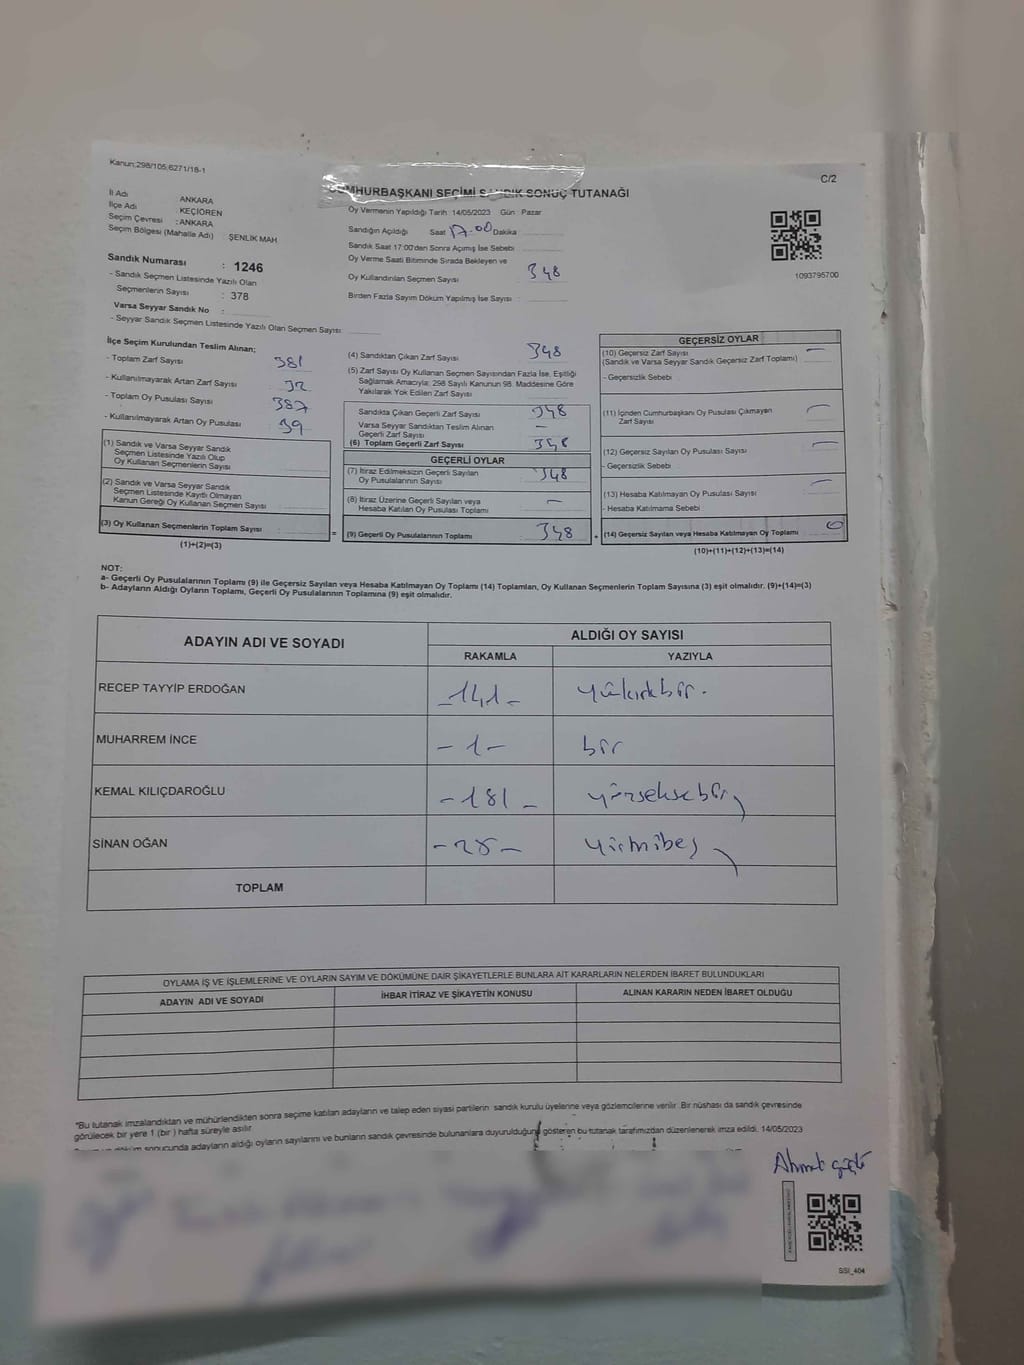 Kanun:298/105,6271/18-1
C/2
CUMHURBAŞKANI SEÇİMİ SANDIK SONUÇ TUTANAĞI
İl Adı : ANKARA
İlçe Adı : KEÇİÖREN
Seçim Çevresi : ANKARA
Seçim Bölgesi (Mahalle Adı) : ŞENLİK MAH
Sandık Numarası : 1246
- Sandık Seçmen Listesinde Yazılı Olan
Seçmenlerin Sayısı : 378
Varsa Seyyar Sandık No :
- Seyyar Sandık Seçmen Listesinde Yazılı Olan Seçmen Sayısı:
Oy Vermenin Yapıldığı Tarih 14/05/2023 Gün Pazar
Sandığın Açıldığı Saat 17.00 Dakika
Sandık Saat 17:00'den Sonra Açımış İse Sebebi
Oy Verme Saati Bitiminde Sırada Bekleyen ve
Oy Kullandırılan Seçmen Sayısı 348
Birden Fazla Sayım Döküm Yapılmış İse Sayısı :
1093795700
İlçe Seçim Kurulundan Teslim Alınan;
- Toplam Zarf Sayısı 381
- Kullanılmayarak Artan Zarf Sayısı 32
- Toplam Oy Pusulası Sayısı 387
- Kullanılmayarak Artan Oy Pusulası 39
(1) Sandık ve Varsa Seyyar Sandık
Seçmen Listesinde Yazılı Olup
Oy Kullanan Seçmenlerin Sayısı
(2) Sandık ve Varsa Seyyar Sandık
Seçmen Listesinde Kayıtlı Olmayan
Kanun Gereği Oy Kullanan Seçmen Sayısı
(3) Oy Kullanan Seçmenlerin Toplam Sayısı
(1)+(2)=(3)
(4) Sandıktan Çıkan Zarf Sayısı 348
(5) Zarf Sayısı Oy Kullanan Seçmen Sayısından Fazla İse, Eşitliği
Sağlamak Amacıyla; 298 Sayılı Kanunun 98. Maddesine Göre
Yakılarak Yok Edilen Zarf Sayısı
Sandıkta Çıkan Geçerli Zarf Sayısı 348
Varsa Seyyar Sandıktan Teslim Alınan
Geçerli Zarf Sayısı –
(6) Toplam Geçerli Zarf Sayısı 348
GEÇERLİ OYLAR
(7) İtiraz Edilmeksizin Geçerli Sayılan
Oy Pusulalarının Sayısı 348
(8) İtiraz Üzerine Geçerli Sayılan veya
Hesaba Katılan Oy Pusulası Toplamı –
= (9) Geçerli Oy Pusulalarının Toplamı 348 +
GEÇERSİZ OYLAR
(10) Geçersiz Zarf Sayısı –
(Sandık ve Varsa Seyyar Sandık Geçersiz Zarf Toplamı)
- Geçersizlik Sebebi
(11) İçinden Cumhurbaşkanı Oy Pusulası Çıkmayan –
Zarf Sayısı
(12) Geçersiz Sayılan Oy Pusulası Sayısı –
- Geçersizlik Sebebi
(13) Hesaba Katılmayan Oy Pusulası Sayısı –
- Hesaba Katılmama Sebebi
(14) Geçersiz Sayılan veya Hesaba Katılmayan Oy Toplamı 0
(10)+(11)+(12)+(13)=(14)
NOT:
a- Geçerli Oy Pusulalarının Toplamı (9) ile Geçersiz Sayılan veya Hesaba Katılmayan Oy Toplamı (14) Toplamları, Oy Kullanan Seçmenlerin Toplam Sayısına (3) eşit olmalıdır. (9)+(14)=(3)
b- Adayların Aldığı Oyların Toplamı, Geçerli Oy Pusulalarının Toplamına (9) eşit olmalıdır.
ADAYIN ADI VE SOYADI ALDIĞI OY SAYISI
RAKAMLA YAZIYLA
RECEP TAYYİP ERDOĞAN -141- yüzkırkbir.
MUHARREM İNCE -1- bir
KEMAL KILIÇDAROĞLU -181- yüzseksebir
SİNAN OĞAN -25- yirmibeş
TOPLAM
OYLAMA İŞ VE İŞLEMLERİNE VE OYLARIN SAYIM VE DÖKÜMÜNE DAİR ŞİKAYETLERLE BUNLARA AİT KARARLARIN NELERDEN İBARET BULUNDUKLARI
ADAYIN ADI VE SOYADI İHBAR İTİRAZ VE ŞİKAYETİN KONUSU ALINAN KARARIN NEDEN İBARET OLDUĞU
*Bu tutanak imzalandıktan ve mühürlendikten sonra seçime katılan adayların ve talep eden siyasi partilerin sandık kurulu üyelerine veya gözlemcilerine verilir. Bir nüshası da sandık çevresinde
görülecek bir yere 1 (bir) hafta süreyle asılır
döküm sonucunda adayların aldığı oyların sayılarını ve bunların sandık çevresinde bulunanlara duyurulduğunu gösteren bu tutanak tarafımızdan düzenlenerek imza edildi. 14/05/2023
Ahmet
SSI_404